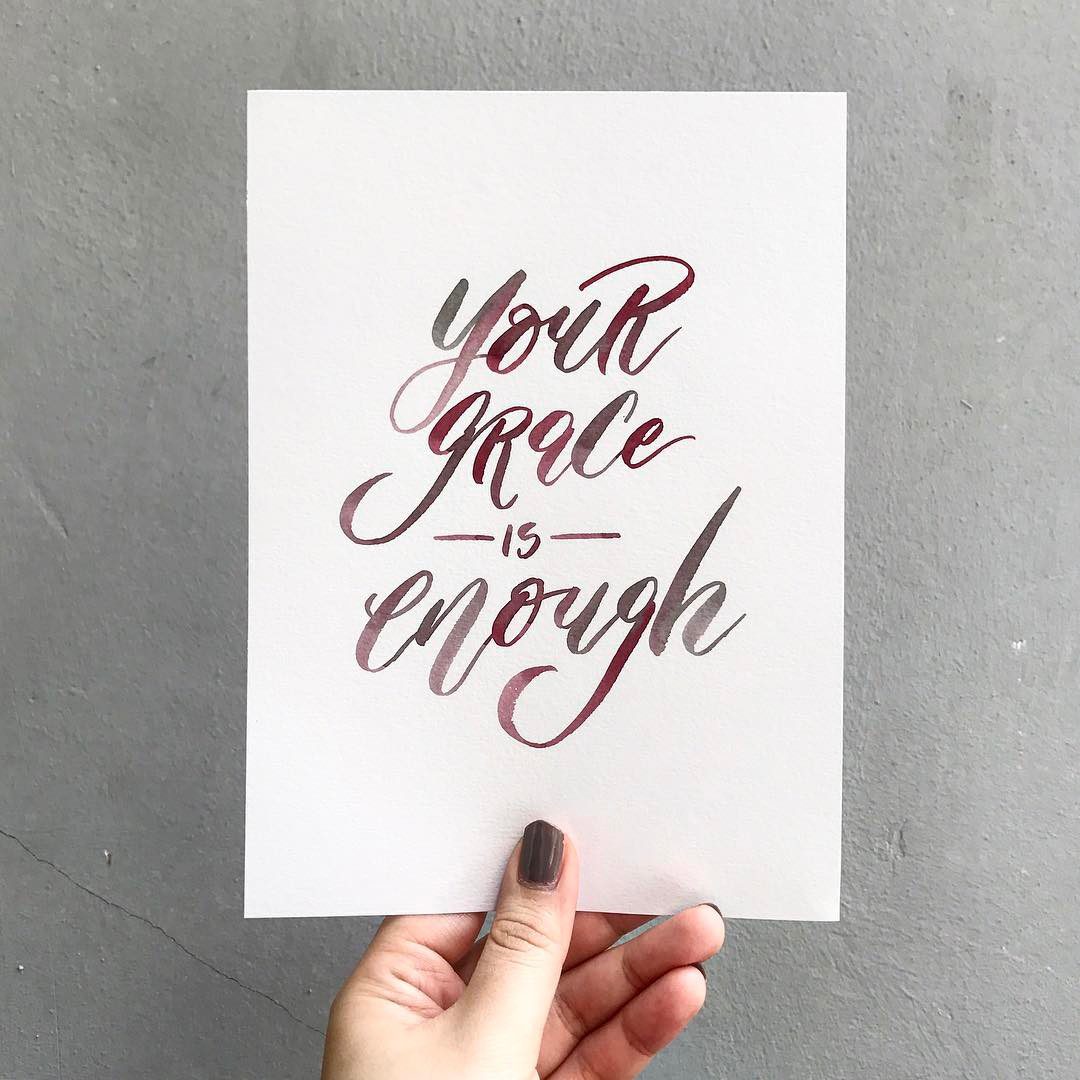 youR
gRace
— is —
enough